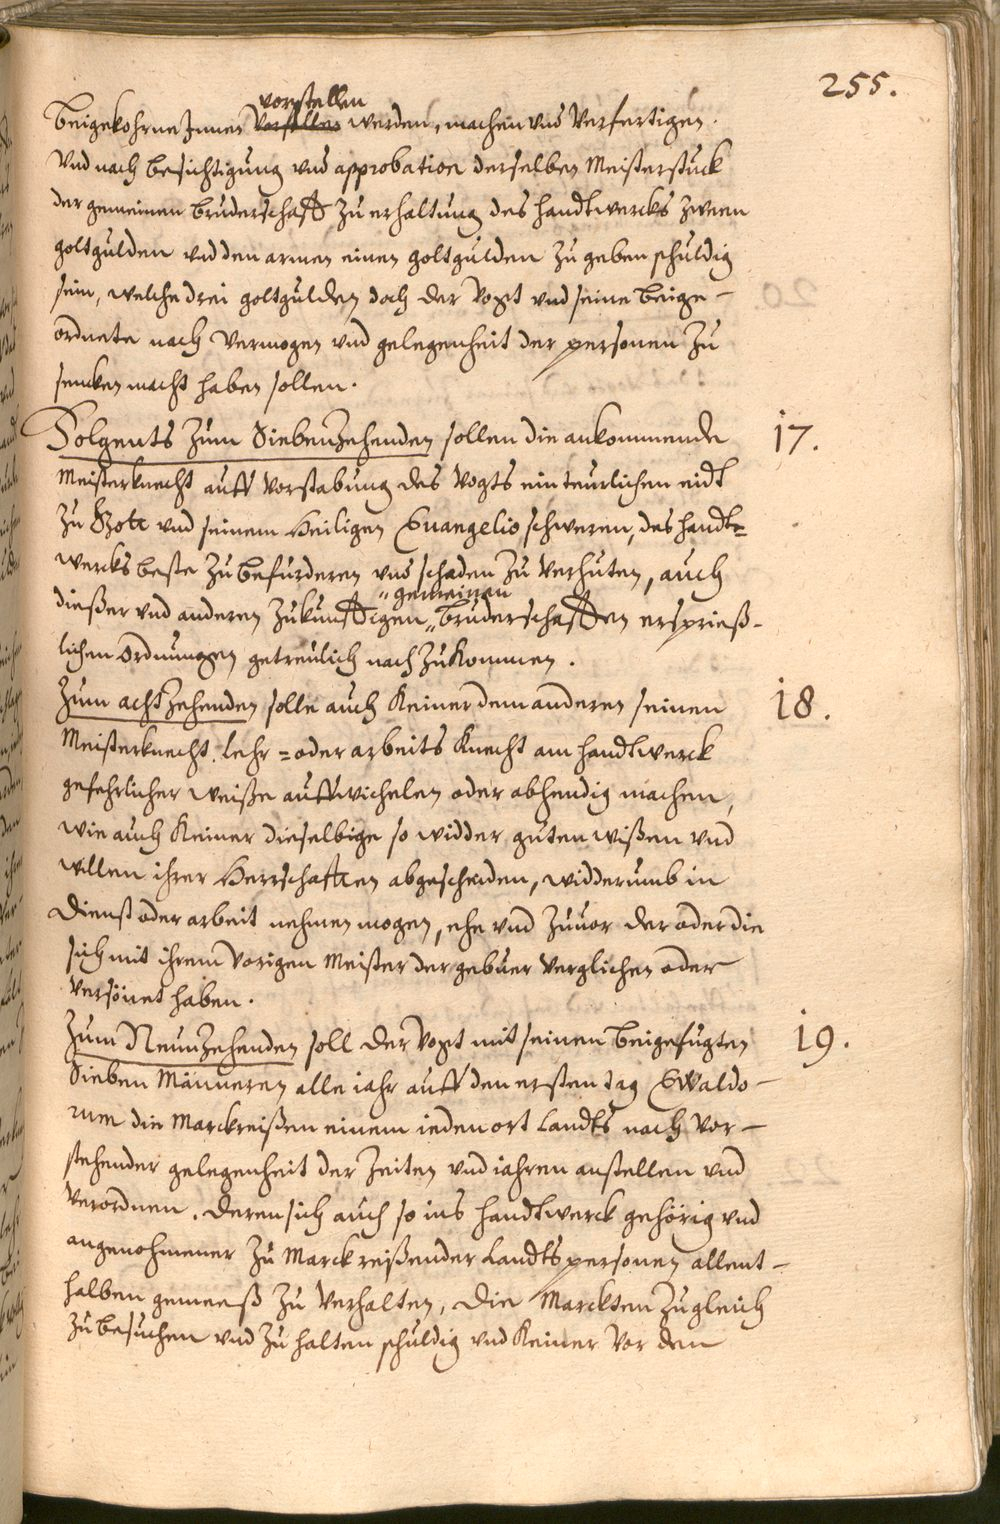 255.
vorstellen
Beigekohrne Jnnen vorstellen werden, machen vnd verfertigen.
Vnd nach besichtigung vnd approbation derselben Meisterstuck
der gemeinen Bruderschafft zu erhaltung des handtwercks zween
goltgulden vnd den armen einen goltgulden zu geben schuldig
sein, welche drei goltgulden doch der Vogt vnd seine beige-
ordnete nach vermogen vnd gelegenheit der personen zu
sencken macht haben sollen.
Folgents zum Siebenzehenden sollen die ankommende 17.
Meisterknecht auff vorstabung des Vogts ein teurlichen eidt
zu Gott vnd seinem Heiligen Euangelio schweren, des handt=
wercks beste zu befurderen vnd schaden zu verhuten, auch
"gemeinen
dießer vnd anderen zukunfftigen " Bruderschafften ersprieß-
lichen Ordnungen getreulich nach zu kommen.
Zum achtzehenden solle auch keiner dem anderen seinen 18.
Meisterknecht, Lehr= oder arbeits knecht am handtwerck
gefehrlicher weiße auffwichelen oder abhendig machen,
wie auch keiner dieselbige so widder guten wißen vnd
willen ihrer Herrschafften abgescheiden, widderumb in
dienst oder arbeit nehmen mogen, ehe vnd zuuor der oder die
sich mit ihrem vorigen Meister der gebuer verglichen oder
versönet haben.
Zum Neunzehenden soll der Vogt mit seinen beigefugten 19.
Sieben Männeren alle iahr auff den ersten tag Ewaldo-
rum die Marckreißen einem ieden ort Landts nach vor-
stehender gelegenheit der zeiten vnd iahren anstellen vnd
verordnen. Deren sich auch so ins handtwerck gehörig vnd
angenohmener zu Marck reißender Landtspersonen allent-
halben gemeeß zu verhalten, die Marckten zugleich
zu besuchen vnd zu halten schuldig vnd keiner vor dem